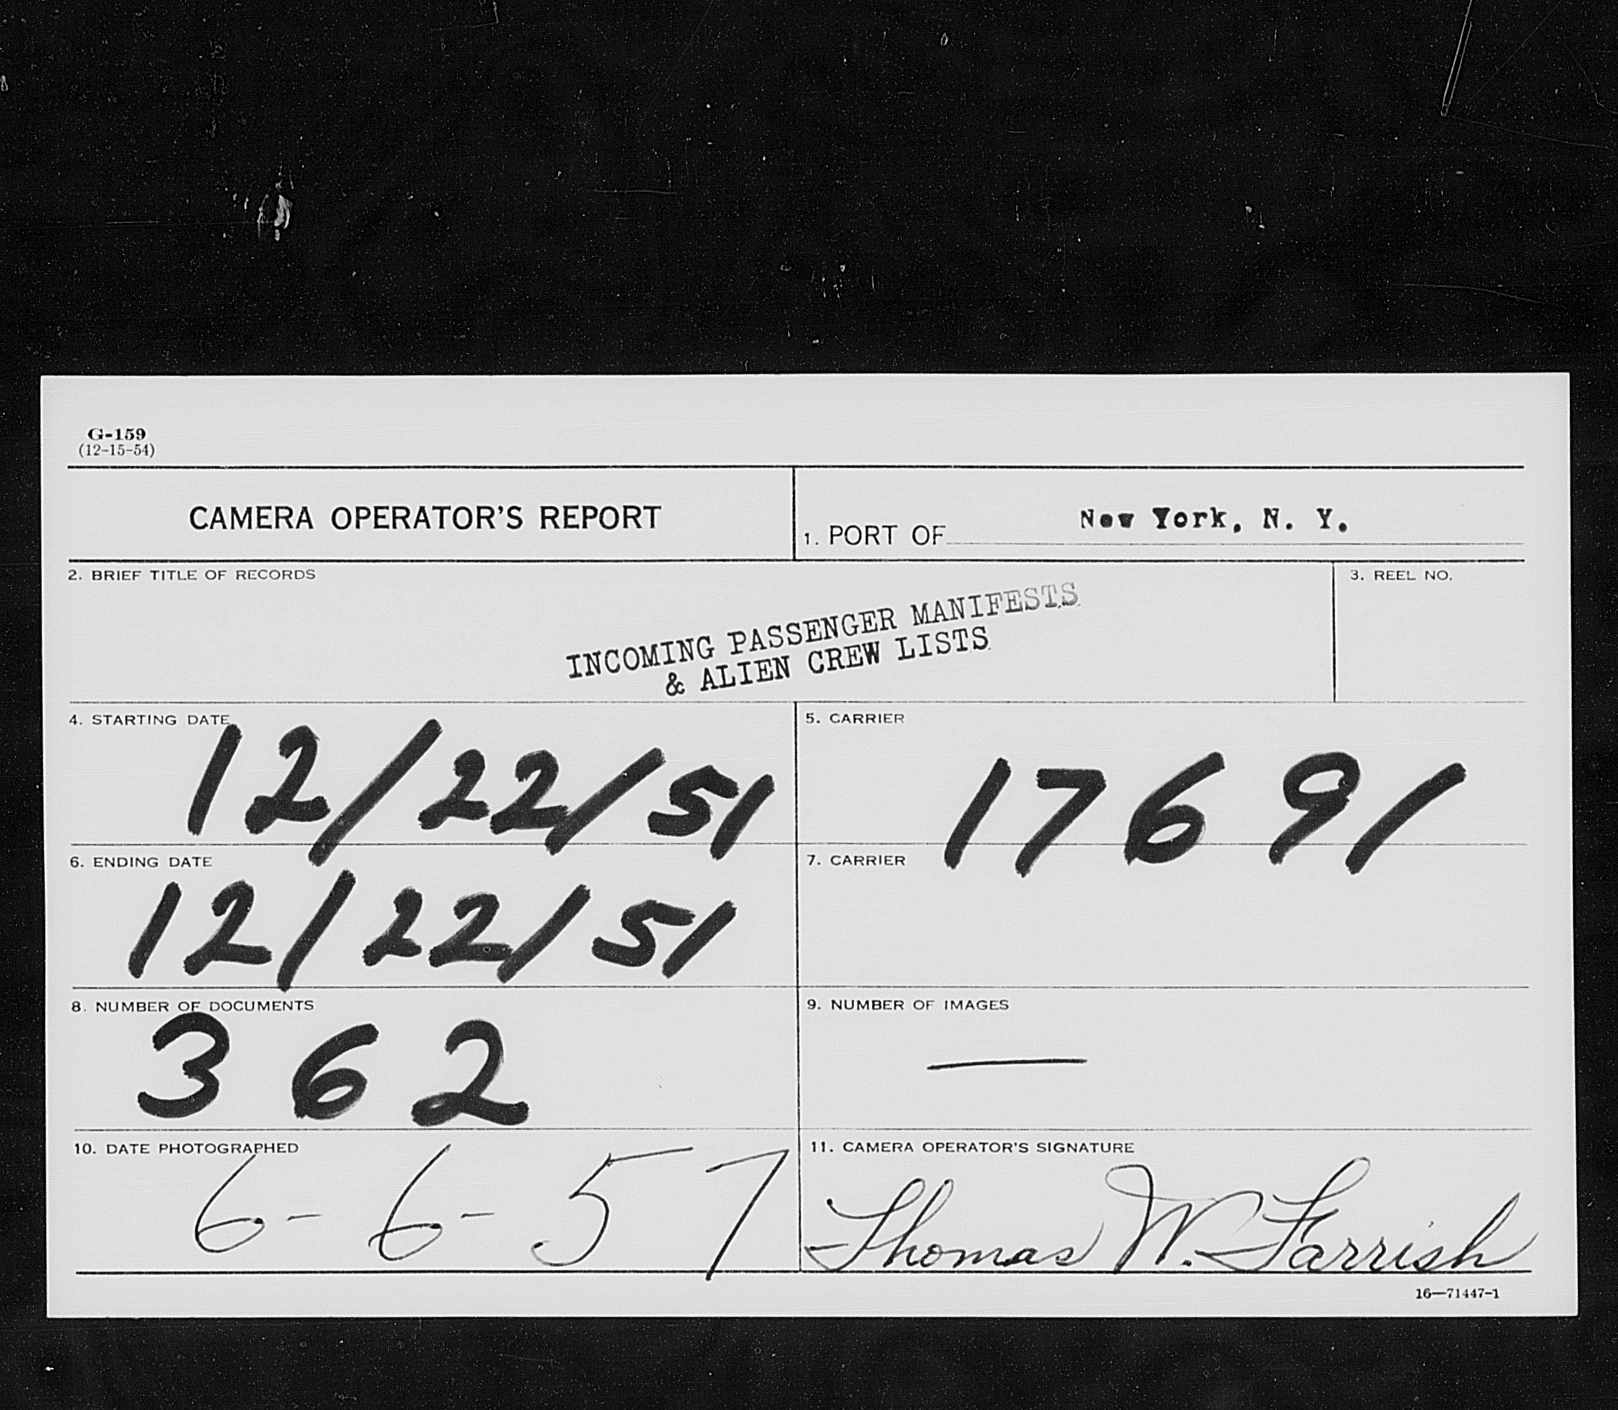 G-159
(12-15-54)
CAMERA OPERATOR'S REPORT
1. PORT OF New York, N. Y.
2. BRIEF TITLE OF RECORDS
INCOMING PASSENGER MANIFESTS
& ALIEN CREW LISTS
3. REEL NO.
4. STARTING DATE
12/22/51
5. CARRIER
17691
6. ENDING DATE
12/22/51
7. CARRIER
8. NUMBER OF DOCUMENTS
362
9. NUMBER OF IMAGES
—
10. DATE PHOTOGRAPHED
6-6-57
11. CAMERA OPERATOR'S SIGNATURE
Thomas W. Farrish
16—71447-1